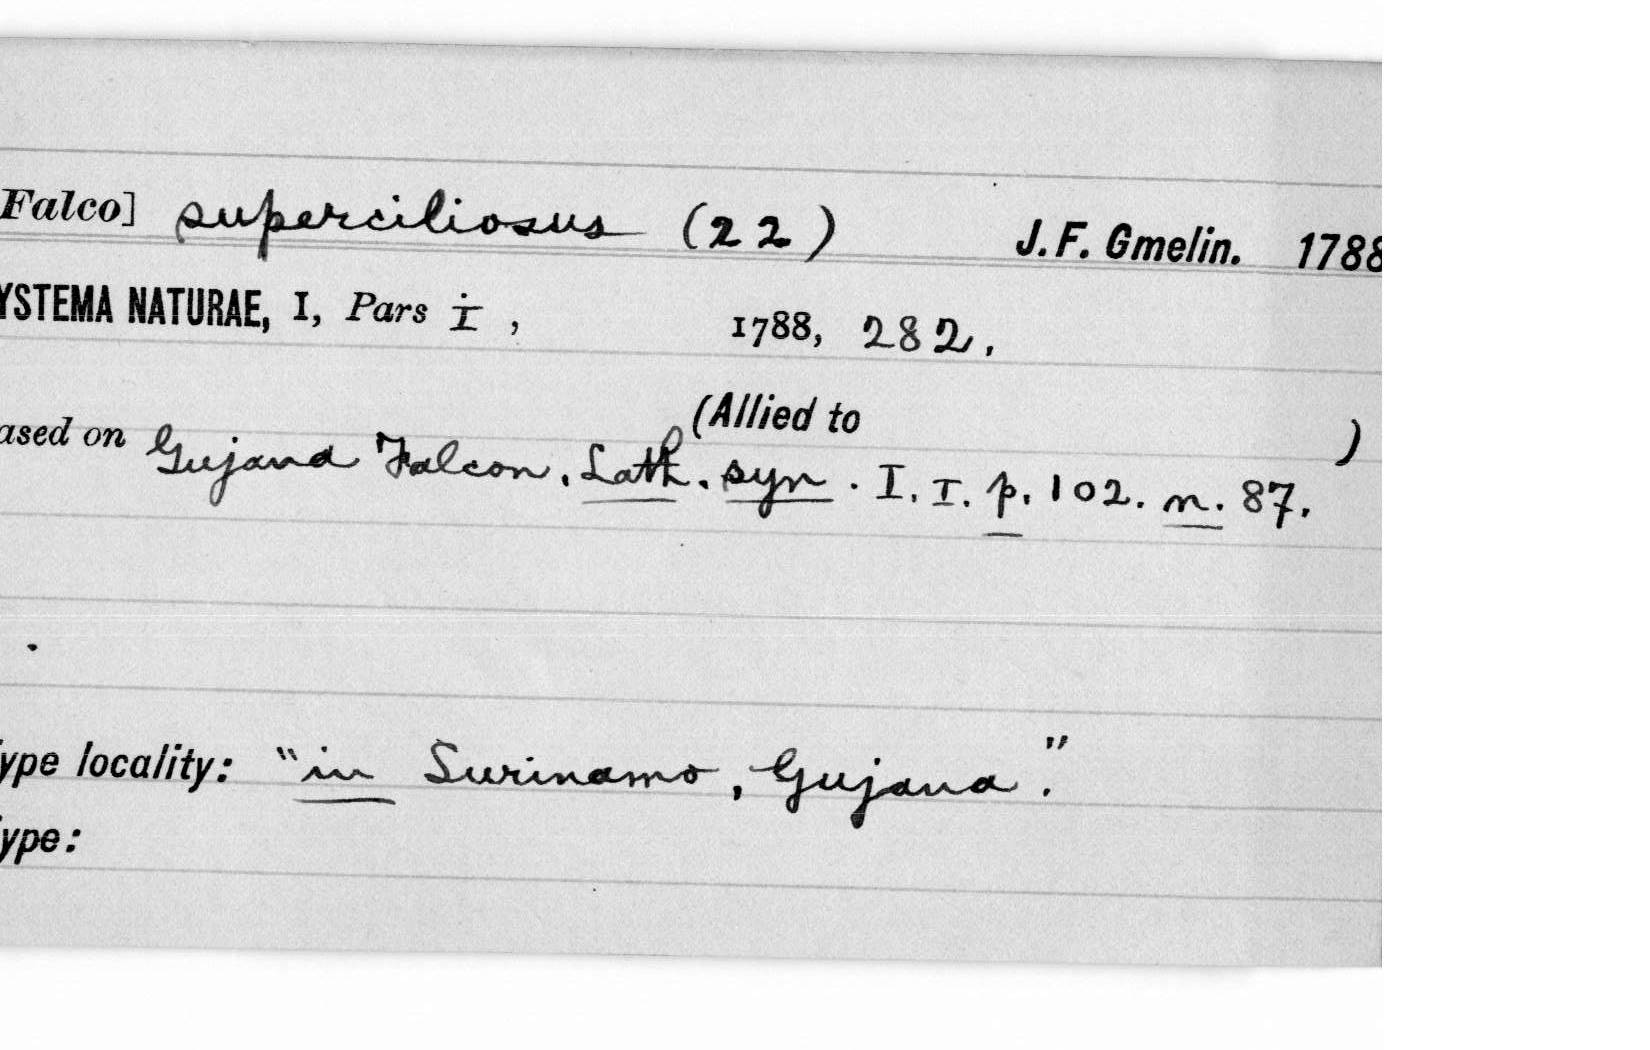 Falco] superciliosus (22) J. F. Gmelin. 1788
YSTEMA NATURAE, I, Pars i, 1788, 282.
(Allied to )
ased on Gujana Falcon. Lath. syn. I. I. p. 102. n. 87.
ype locality: "in Surinamo, Gujana."
ype: